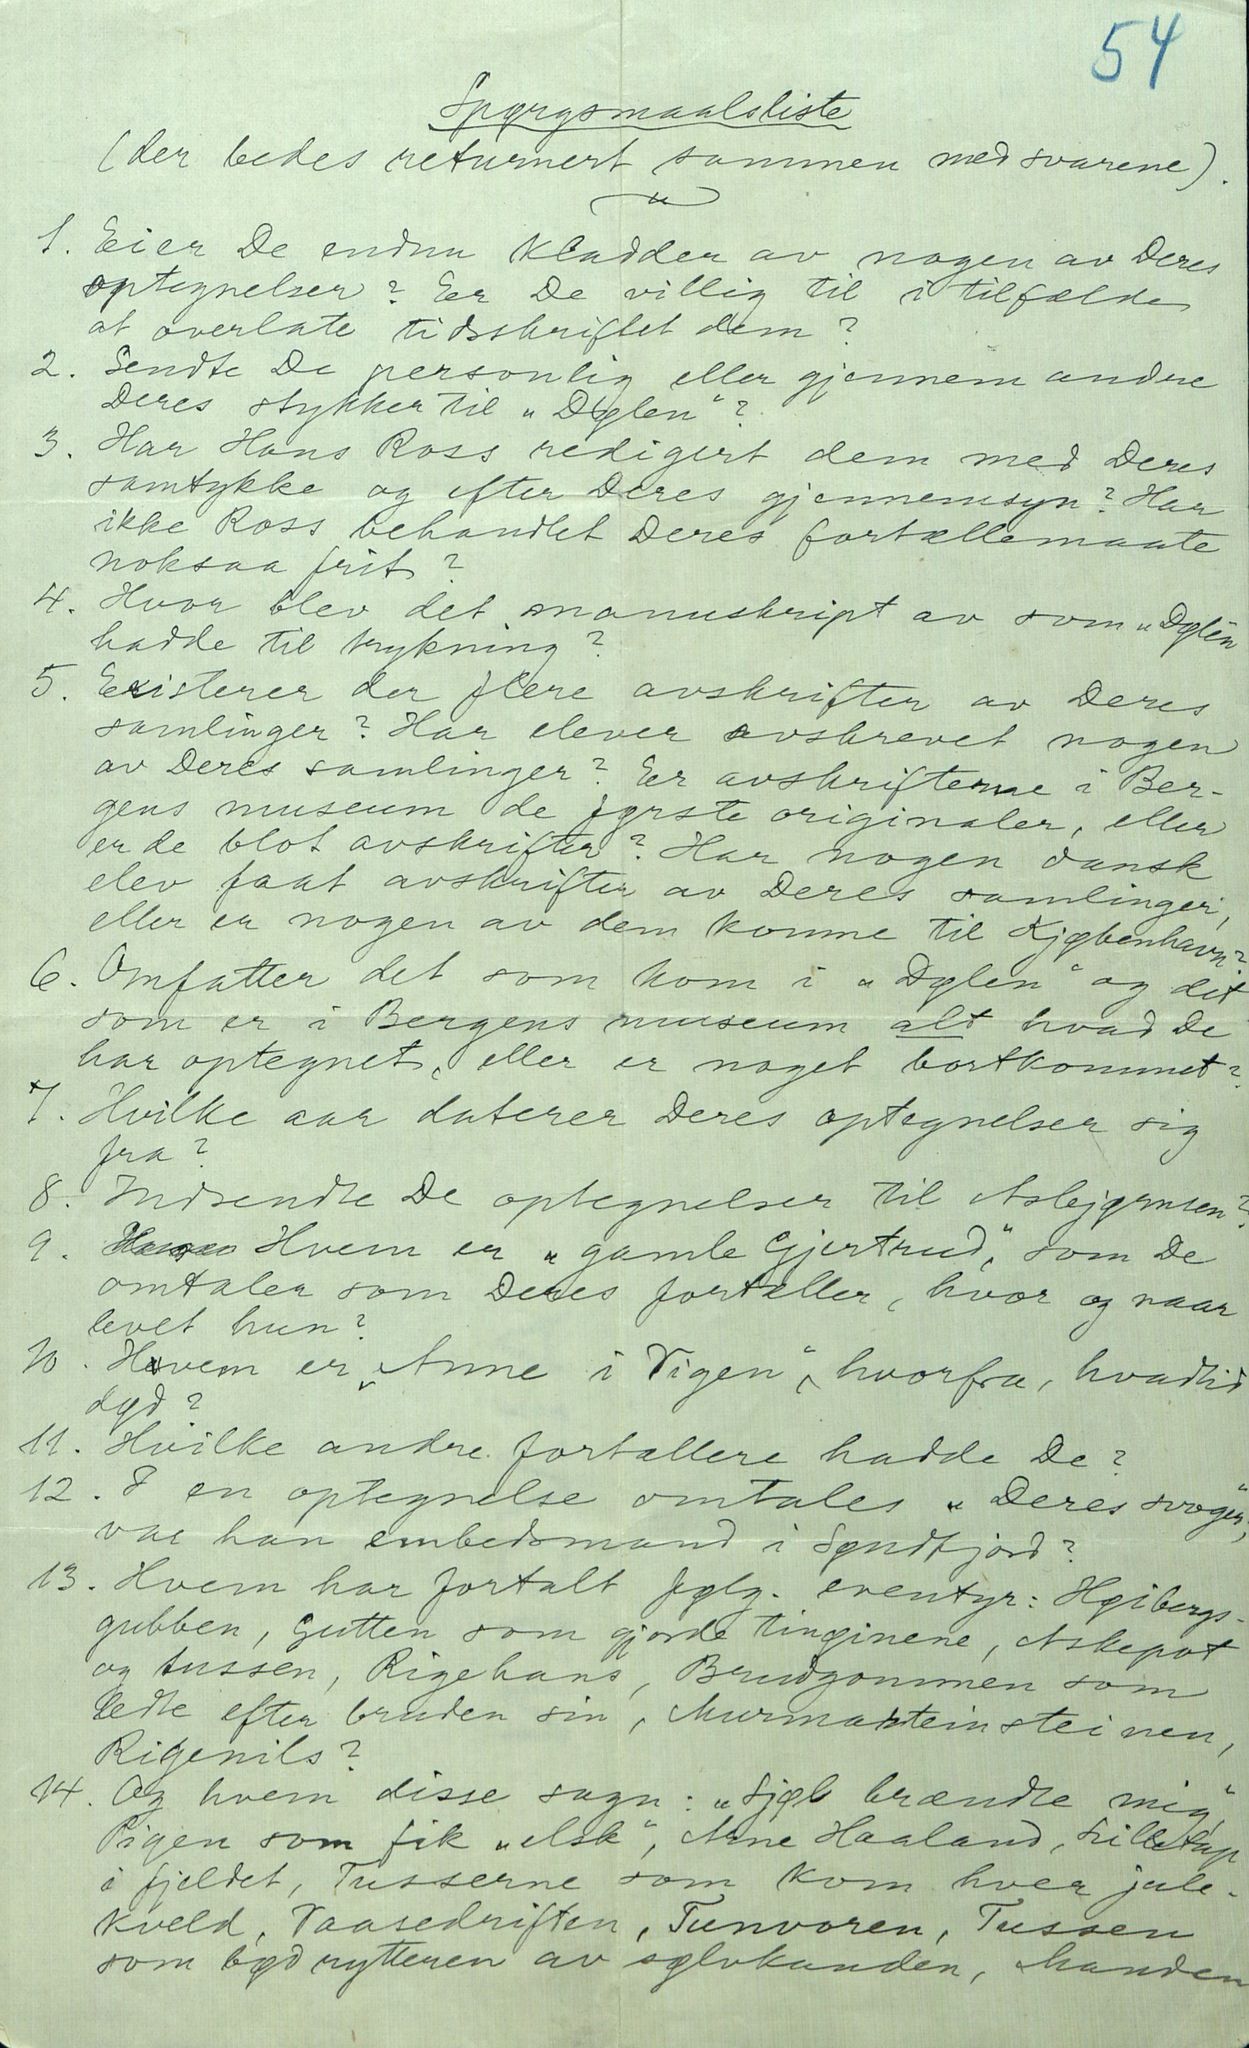 54
Spørgsmaalsliste
(der bedes returnert sammen med svarene).
1. Eier De endnu kladder av nogen av Deres
optegnelser? Er De villig til i tilfælde
at overlate tidsskriftet dem?
2. Sendte De personlig eller gjennem andre
Deres stykker til „Dølen"?
3. Har Hans Ross redigert dem med Deres
samtykke og efter Deres gjennemsyn? Har
ikke Ross behandlet Deres fortællemaate
noksaa frit?
4. Hvor blev det manuskript av som „Dølen
hadde til trykning?
5. Existerer der flere avskrifter av Deres
samlinger? Har elever avskrevet nogen
av Deres samlinger? Er avskrifterne i Ber-
gens museum de første originaler, eller
er de blot avskrifter? Har nogen dansk
elev faat avskrifter av Deres samlinger,
eller er nogen av dem komne til Kjøbenhavn?
6. Omfatter det som kom i „Dølen" og det
som er i Bergens museum alt hvad De
har optegnet, eller er noget bortkommet?
7. Hvilke aar daterer Deres optegnelser sig
fra?
8. Indsendte De optegnelser til Asbjørnsen?
9. Hvem er „gamle Gjertrud", som De
omtaler som Deres fortæller, hvor og naar
levet hun?
10. Hvem er „Anne i Vigen", hvorfra, hvadtid
død?
11. Hvilke andre fortællere hadde De?
12. I en optegnelse omtales „Deres svoger",
var han embedsmand i Søndfjord?
13. Hvem har fortalt følg. eventyr: Høibergs-
gubben, Gutten som gjorde tinginene, Askepot
og tussen, Rigehans, Brudgommen som
ledte efter bruden sin, Murmarsteinsteinen,
Rigenils?
14. Og hvem disse sagn: „Sjøl brændte mig",
Pigen som fik „elsk", Arne Haaland, Sillelap
i fjeldet, Tusserne som kom hver jule-
kveld, Vaasedriften, Tunvoren, Tussen
som bød rytteren av sølvkanden, Manden